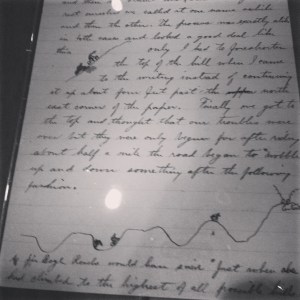 and then
not smaller we called at one cabin
and then the other. The process was exactly alike
in both cases and looked a good deal like
this only I had to foreshorten
the top of the hill when I came
to the writing instead of continuing
it up about four feet past the north
east corner of the paper. Finally we got to
the top and thought that our troubles were
over but they were only begun for after riding
about half a mile the road began to "wobble"
up and down something after the following
fashion.
would have said "Just when
had climbed to the highest of all possible